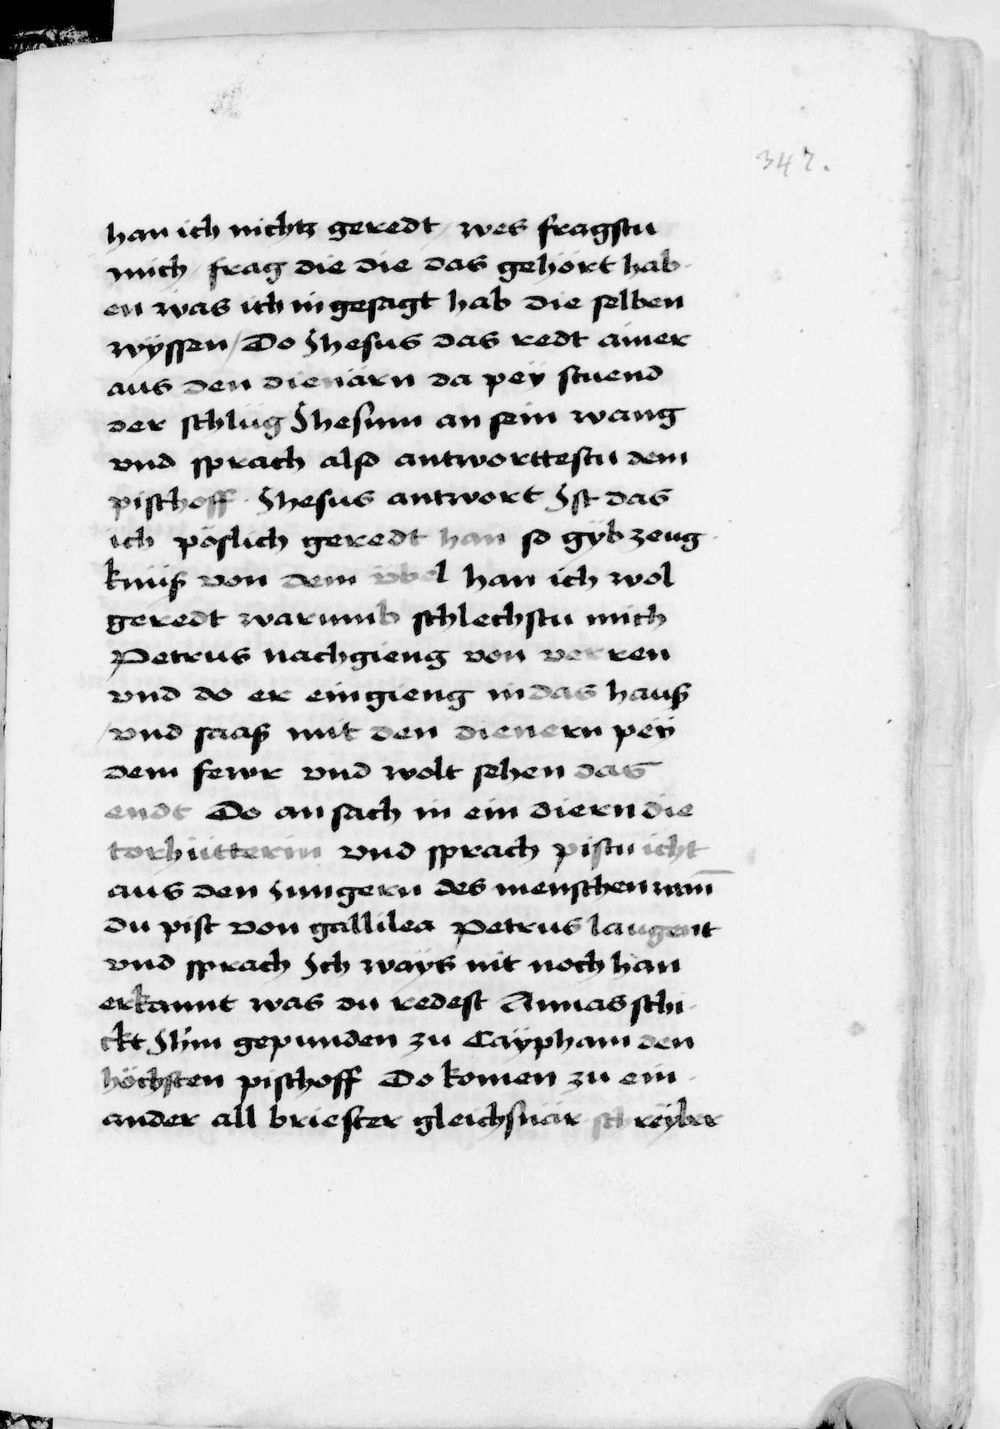 347.
han ich nichtz geredt / wes fragstu
mich / frag die die das gehort hab-
en was ich in gesagt hab die selben
wyssen / Do Jhesus das redt ainer
aus den dienärn da peÿ stuend
der schlüg Jhesum an sein wang
vnd sprach also antworttestu dem
pischoff · Jhesus antwort Jst das
ich pöslich geredt han so gÿb zeug-
knüß von dem übel han ich wol
geredt warumb schlechstu mich
Petrus nachgieng von verren
vnd do er eingieng in das hauß
/ vnd saaß mit den dienern peÿ
dem fewr vnd wolt sehen das
endt Do an sach in ein diern die
torhütterin vnd sprach pistu icht
aus den Jungern des menschen wañ
du pist von gallilea Petrus laugent
vnd sprach Jch waÿs nit noch han
erkannt was du redest Annas schi-
ckt Jhm gepunden zu Caÿpham den
höchsten pischoff Do komen zu ein-
ander all briester gleichsnär schreÿber